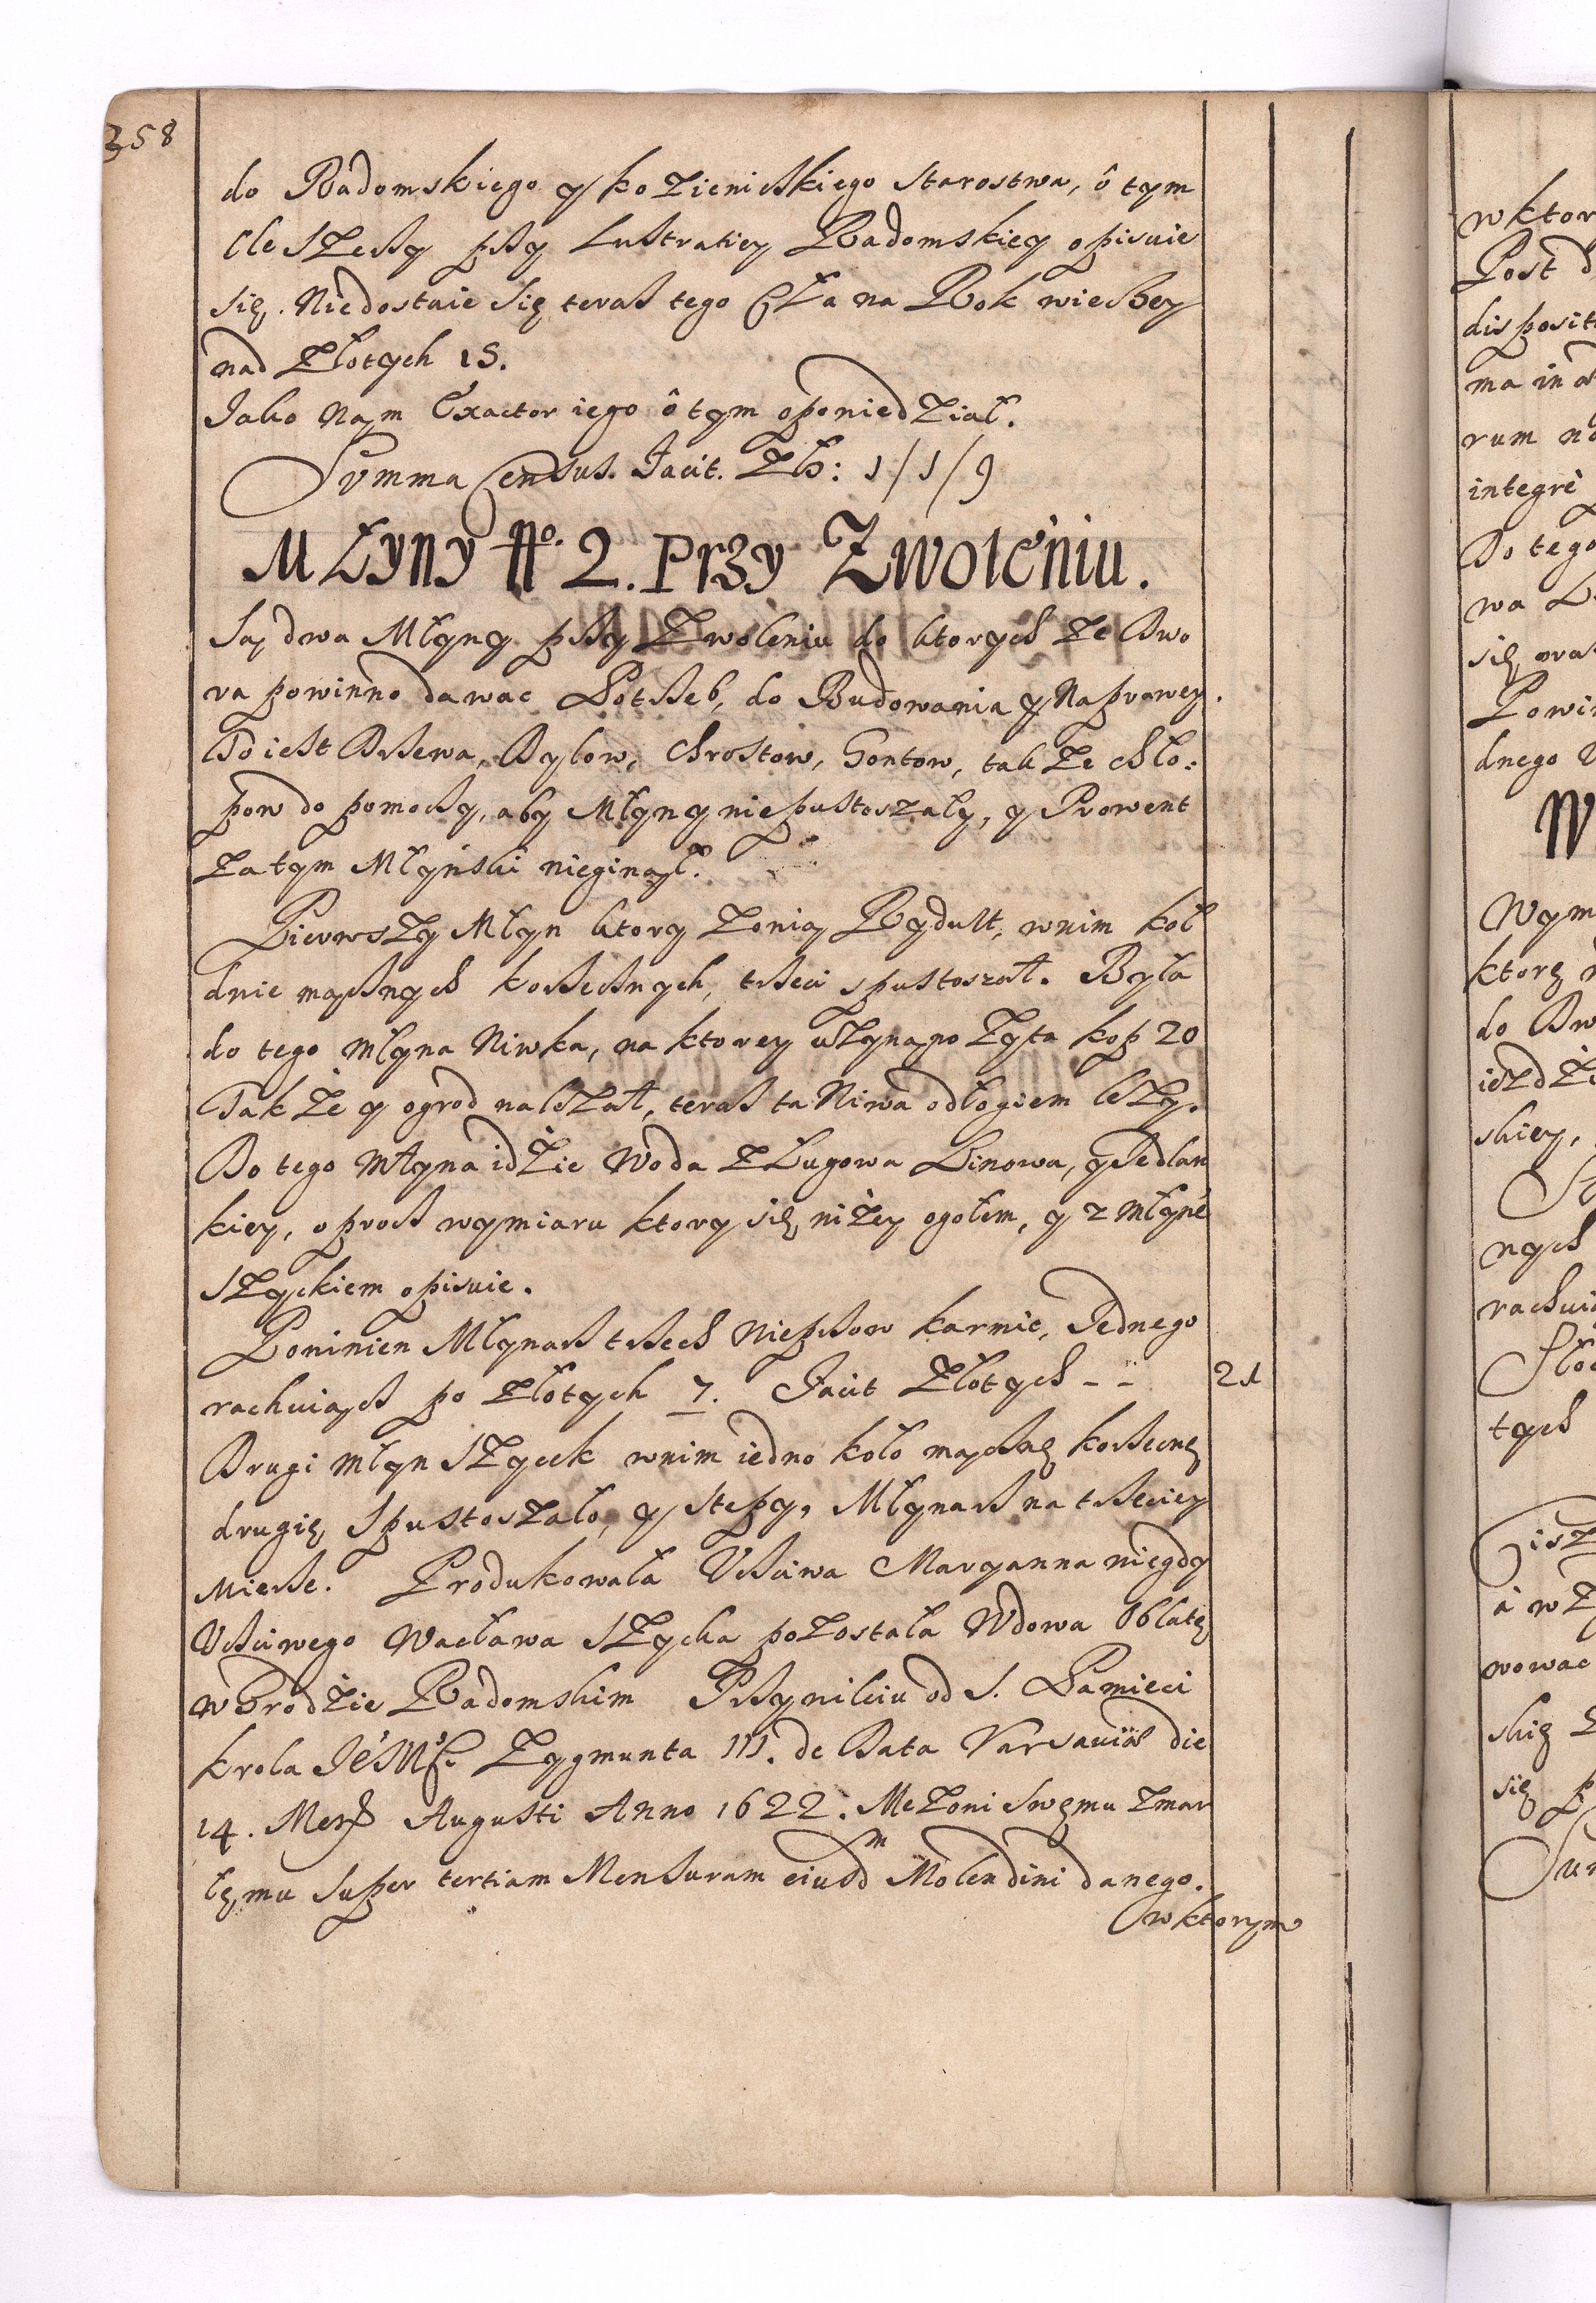 358
do Radomskiego y kozienickiego Starostwa, ô tym
Cle szerzy przy Lustratiey Radomskiey opisuie
się. Niedostaie się teraz tego Cła na Rok wiecey
nad Złotych 15.
Jako Nam Exactor iego ô tym opowiedział.
Summa Census. Facit. Zł: 1/1/9
MŁyny No. 2. Przy Zwoleniu.
Są dwa Młyny przy Zwoleniu do ktorych ze Dwo
ra powinno dawac Potrzeb, do Budowania y Naprawey.
To iest Drzewa, Dylow, Chrostow, Gontow, tak ze chło:
pow do pomocy, aby Młyny niepustoszały, y Prowent
Zatym Młynski nieginął.
Pierwszy Młyn ktory Zonią Rydult, wnim koł
dwie mącznych korzecznych, trzeci spustoszał. Była
do tego Młyna Niwka, na ktorey użynano Zyta kop 20
Takze y ogrod nalezał, teraz ta Niwa odłogiem lezy.
Do tego Młyna idzie Woda z Ługowa Linowa, y Jedlan
kiey, oprocz wymiaru ktory się niżey ogołem, y z Młynē
Szyckiem opisuie.
Powinien Młynarz trzech Nieprzow karmic, Jednego
rachuiąc po złotych 7. Facit Złotych - - 21
Drugi Młyn Szycek wnim iedno koło mączne korzecne
drugie Spustoszało, y Stępy, Młynarz na trzeciey
Mierze. Produkowała Uczciwa Maryanna niegdy
Uczciwego Wacława Szycka pozostała Wdowa Oblatę
w Grodzie Radomskim Przywileiu od S. Pamieci
krola JeśMści Zygmunta III. de Data Varsaviæ die
14. Mens Augusti Anno 1622. Mezoni Swęmu Zmar
łęmu Super tertiam Mensuram eiusdm Molendini danego.
w ktorym